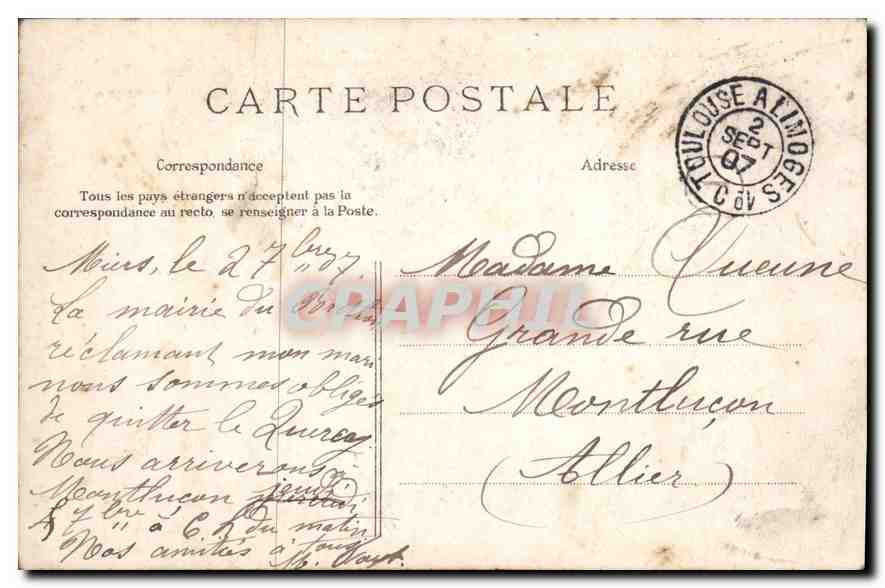 CARTE POSTALE
Correspondance
Adresse
Tous les pays étrangers n'acceptent pas la
correspondance au recto, se renseigner à la Poste.
TOULOUSE A LIMOGES
2
SEPT
07
CRAPHIL
Miers, le 2 7bre 07
La mairie du
réclamant mon mari
nous sommes obligés
de quitter le Quercy
Nous arriverons à
Montluçon jeudi
5 7bre à 6 h du matin
Nos amitiés à tous
M.
Madame Queune
Grande rue
Montluçon
(Allier)